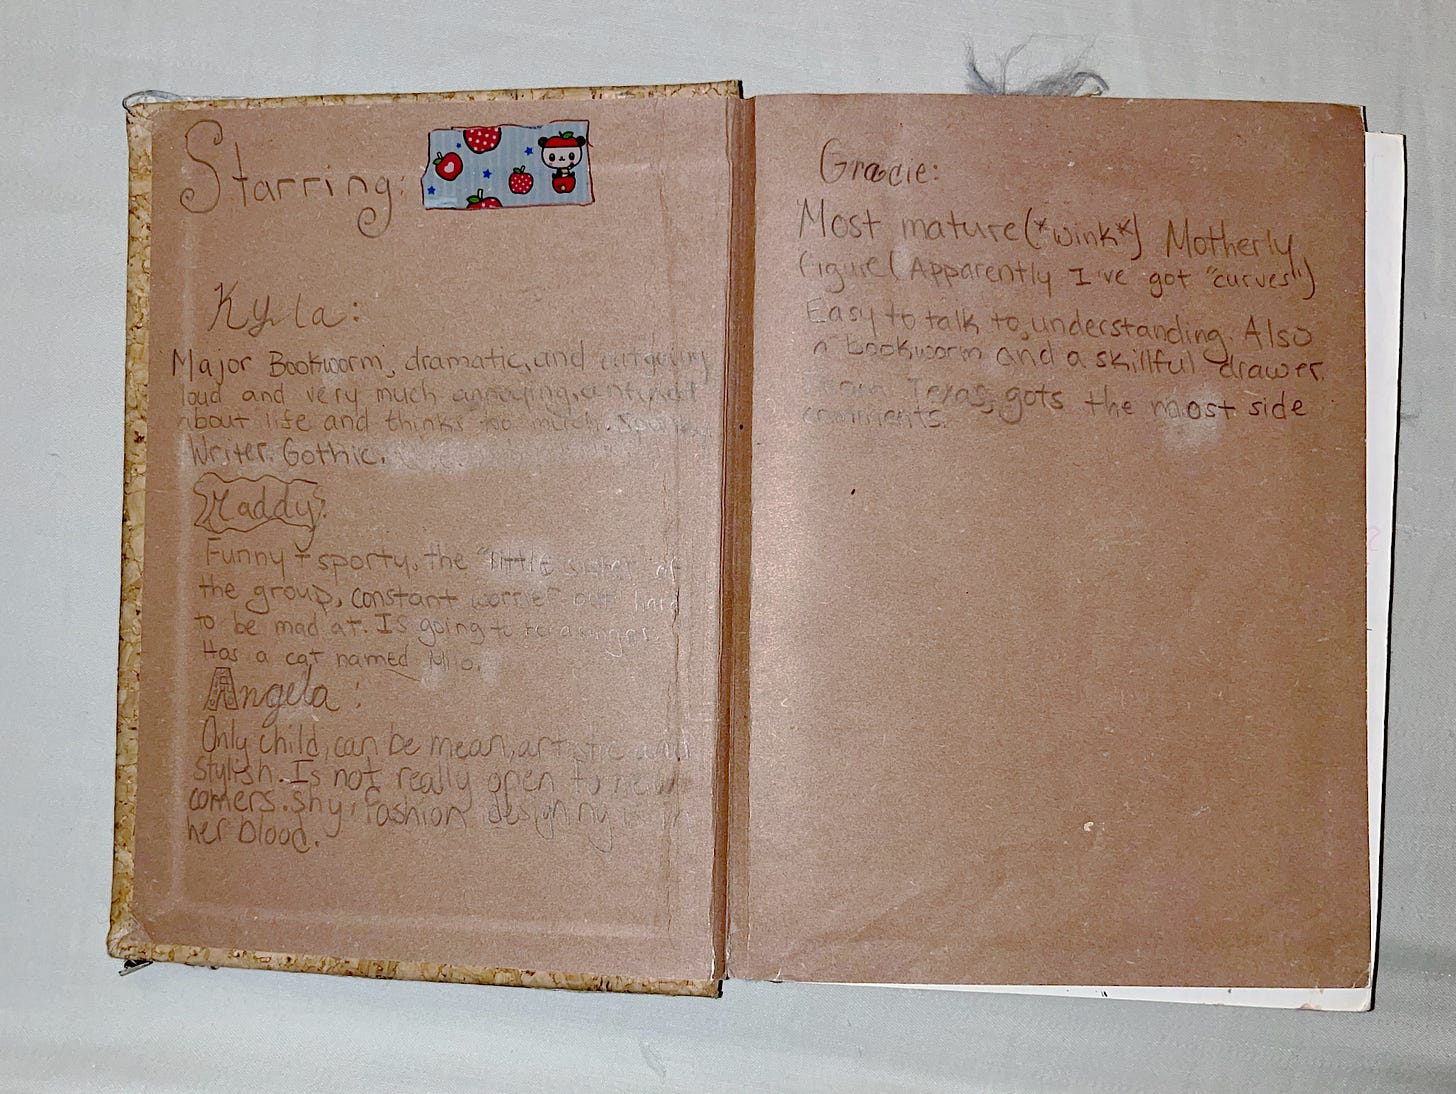 Starring:
Kyla:
Major Bookworm, dramatic, and outgoing
loud and very much annoying,
about life and thinks too much.
Writer. Gothic.
Maddy:
Funny + sporty, the "little sister of
the group, constant worrier but hard
to be mad at. Is going to
Has a cat named Milo.
Angela:
Only child, can be mean, artistic and
stylish. Is not really open to new
comers. shy, fashion designing is in
her blood.
Gracie:
Most mature (*wink*) Motherly
figure (Apparently I've got "curves")
Easy to talk to, understanding. Also
a bookworm and a skillful drawer.
From Texas, gots the most side
comments.